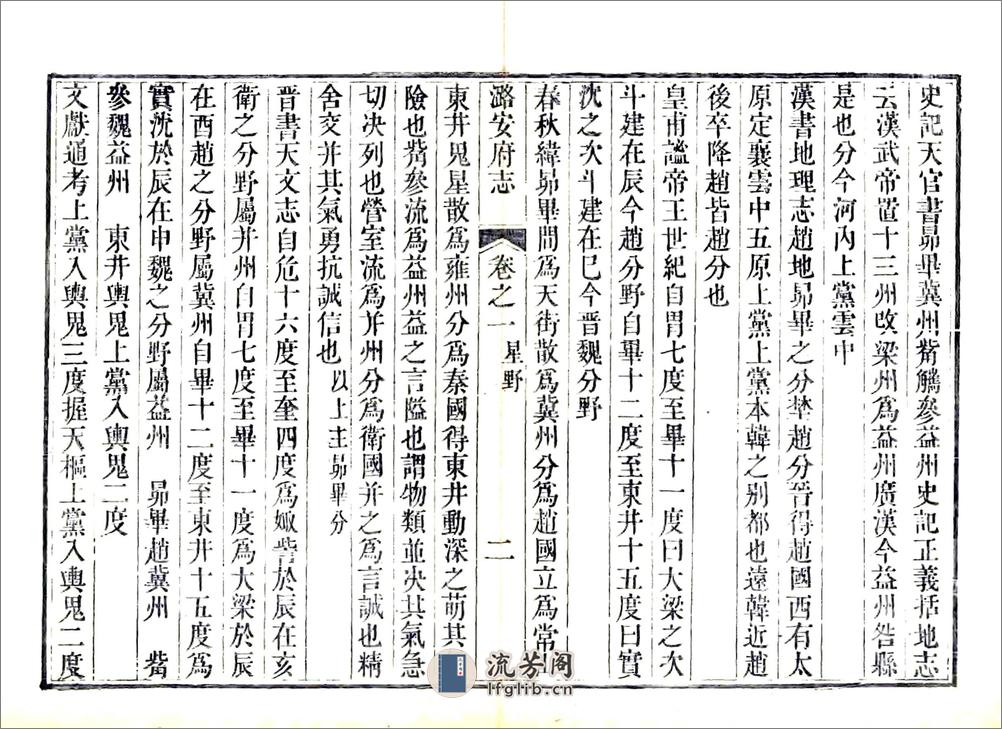 史記天官書昴畢冀州觜觿參益州史記正義括地志
云漢武帝置十三州改梁州爲益州廣漢今益州咎縣
是也分今河內上黨雲中
漢書地理志趙地昴畢之分埜趙分晉得趙國西有太
原定襄雲中五原上黨上黨本韓之別都也遠韓近趙
後卒降趙皆趙分也
皇甫謐帝王世紀自胃七度至畢十一度曰大梁之次
斗建在辰今趙分野自畢十二度至東井十五度曰實
沈之次斗建在巳今晉魏分野
春秋緯昴畢間爲天街散爲冀州分爲趙國立爲常山
潞安府志 卷之一 星野 二
東井鬼星散爲雍州分爲秦國得東井動深之萌其氣
險也觜參流爲益州益之言隘也謂物類並决其氣急
切决列也營室流爲并州分爲衛國并之爲言誠也精
舍交并其氣勇抗誠信也 以上主昴畢分
晉書天文志自危十六度至奎四度爲娵訾於辰在亥
衛之分野屬并州自胃七度至畢十一度爲大梁於辰
在酉趙之分野屬冀州自畢十二度至東井十五度爲
實沈於辰在申魏之分野屬益州 昴畢趙冀州 觜
參魏益州 東井輿鬼上黨入輿鬼二度
文獻通考上黨入輿鬼三度握天樞上黨入輿鬼二度
流芳阁
lfglib.cn